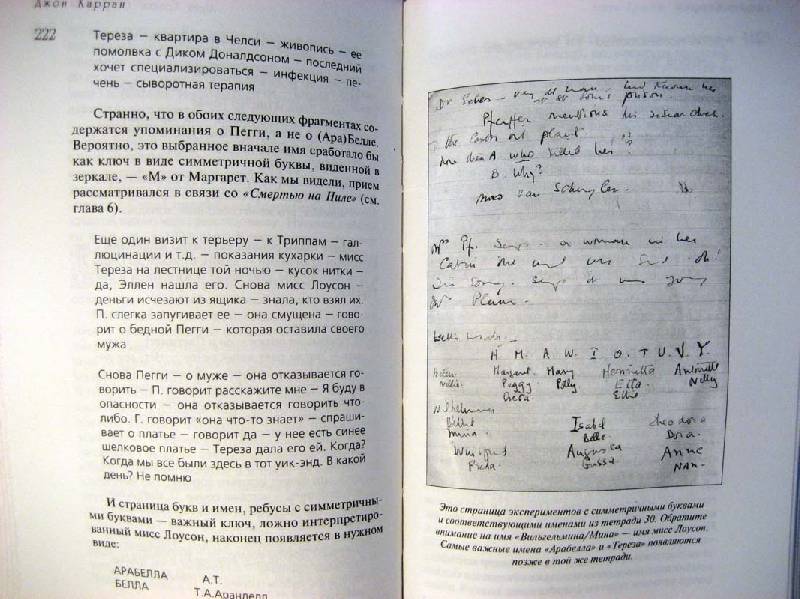 Джон Карран
222
Тереза – квартира в Челси – живопись – ее
помолвка с Диком Доналдсоном – последний
хочет специализироваться – инфекция – пе-
чень – сыворотная терапия
Странно, что в обоих следующих фрагментах со-
держатся упоминания о Пегги, а не о (Ара)Белле.
Вероятно, это выбранное вначале имя сработало бы
как ключ в виде симметричной буквы, виденной в
зеркале, — «М» от Маргарет. Как мы видели, прием
рассматривался в связи со «Смертью на Ниле» (см.
глава 6).
Еще один визит к терьеру – к Триппам – гал-
люцинации и т.д. – показания кухарки – мисс
Тереза на лестнице той ночью – кусок нитки –
да, Эллен нашла его. Снова мисс Лоусон –
деньги исчезают из ящика – знала, кто взял их.
П. слегка запугивает ее – она смущена – гово-
рит о бедной Пегги – которая оставила своего
мужа
Снова Пегги – о муже – она отказывается го-
ворить – П. говорит расскажите мне – Я буду в
опасности – она отказывается говорить что-
либо. Г. говорит «она что-то знает» – спраши-
вает о платье – говорит да – у нее есть синее
шелковое платье – Тереза дала его ей. Когда?
Когда мы все были здесь в тот уик-энд. В какой
день? Не помню
И страница букв и имен, ребусы с симметричны-
ми буквами — важный ключ, ложно интерпретиро-
ванный мисс Лоусон, наконец появляется в нужном
виде:
АРАБЕЛЛА А.Т.
БЕЛЛА Т.А.Аранделл
Pfeiffer mentions his
who killed her?
B. Why?
Miss Van Schuyler
a woman in her
H. M. A. W. I. O. T. U. V. Y.
Margaret Mary Henrietta Antoinette
Peggy Polly Etta Nelly
Greta Ellie
Isabel Theodora
Belle Dora
Augusta Anne
Gussie Nan
Это страница экспериментов с симметричными буквами
и соответствующими именами из тетради 30. Обратите
внимание на имя «Вильгельмина/Мина» — имя мисс Лоусон.
Самые важные имена «Арабелла» и «Тереза» появляются
позже в той же тетради.